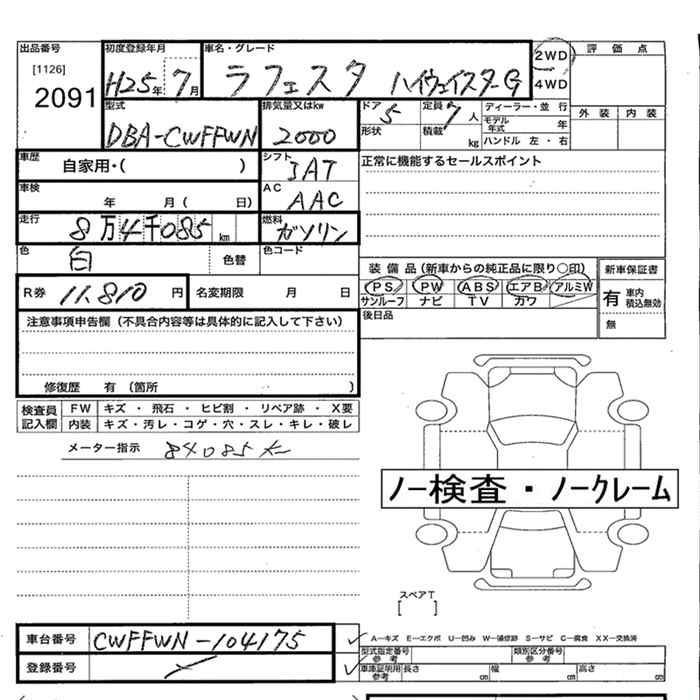 出品番号 初度登録年月 車名・グレード 2WD 評価点
[1126] H25年7月 ラフェスタ ハイウェイスターG 4WD
2091
型式 排気量又はkw ドア 5 定員 7人 ディーラー・並行 外装 内装
DBA-CWFFWN 2000 形状 積載 kg モデル年式 年
ハンドル 左・右
車歴 自家用・( ) シフト AT 正常に機能するセールスポイント
車検 年 月( 日) AC AAC
走行 8万4千085km 燃料 ガソリン
色 白 色替 色コード
装備品(新車からの純正品に限り○印) 新車保証書
R券 11,810円 名変期限 月 日 PS PW ABS エアB アルミW 有 車内積込無効
サンルーフ ナビ TV カワ
注意事項申告欄(不具合内容等は具体的に記入して下さい) 後日品 無
修復歴 有(箇所 )
検査員記入欄 FW キズ・飛石・ヒビ割・リペア跡・X要
内装 キズ・汚レ・コゲ・穴・スレ・キレ・破レ
メーター指示 84085
ノー検査・ノークレーム
スペアT
[ ]
車台番号 CWFFWN-104175 A-キズ E-エクボ U-凹み W-補修跡 S-サビ C-腐食 XX-交換済
型式指定番号 参考 類別区分番号 参考
登録番号 車庫証明用 参考 長さ cm 幅 cm 高さ cm